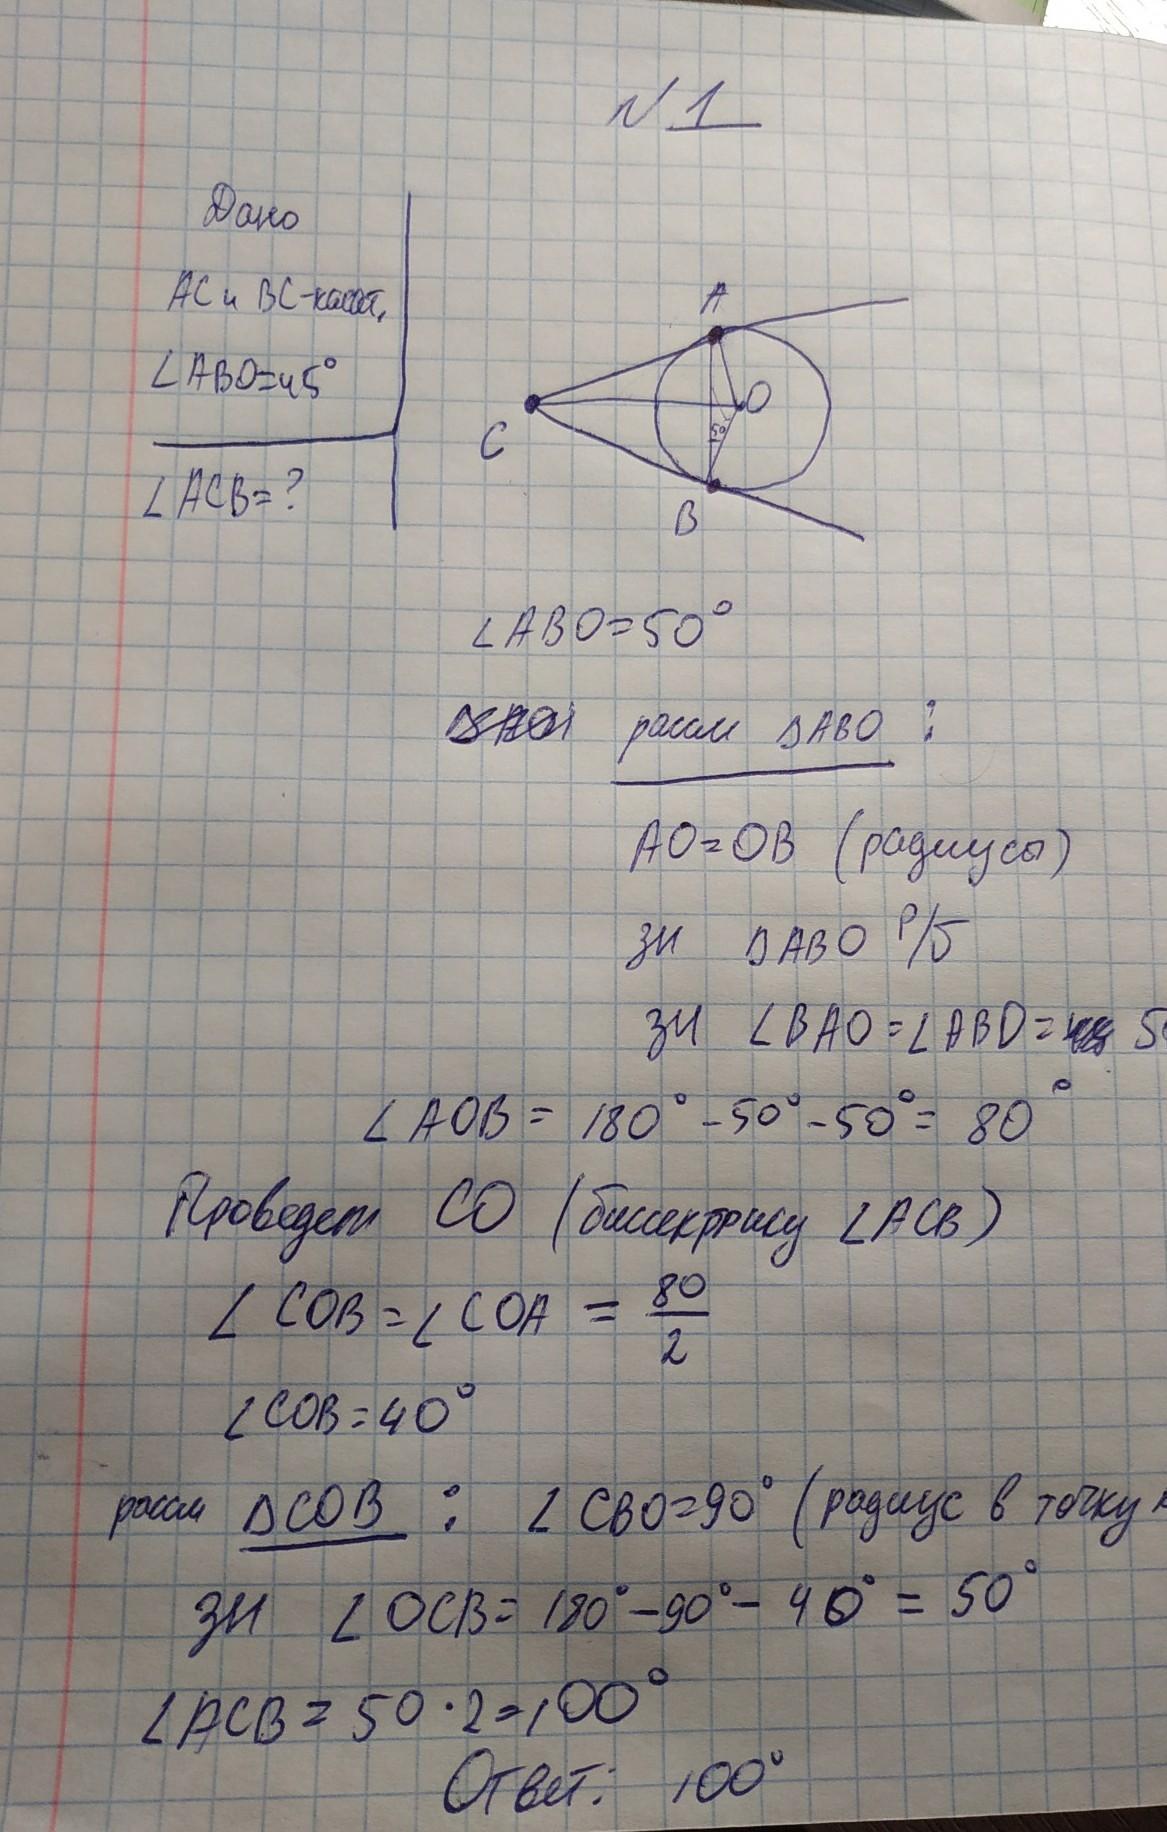 N 1
Дано
AC и BC-касат.
∠ABO=45°
∠ACB=?
A
C
O
50
B
∠ABO=50°
рассм ΔABO :
AO=OB (радиусы)
зн ΔABO р/б
зн ∠BAO=∠ABO= 50
∠AOB = 180°-50°-50°= 80°
Проведем CO (биссектрису ∠ACB)
∠COB=∠COA = 80/2
∠COB=40°
рассм ΔCOB : ∠CBO=90° (радиус в точку к
зн ∠OCB= 180°-90°- 40° = 50°
∠ACB = 50·2=100°
Ответ: 100°